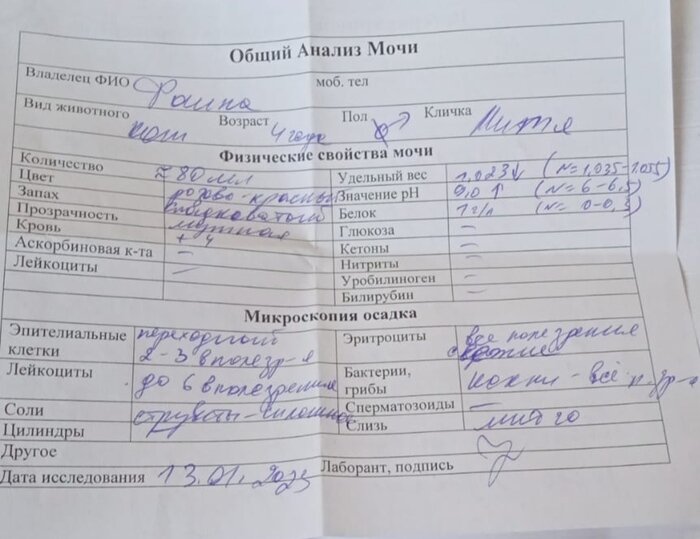 Общий Анализ Мочи
Владелец ФИО моб. тел
Вид животного кот Возраст 4 года Пол Кличка Митя
Физические свойства мочи
Количество ≈ 80 мл Удельный вес 1,023↓ (N=1,035-1.055)
Цвет розово-красный Значение pH 9,0↑ (N= 6-6,5)
Запах Белок 1 г/л (N= 0-0,3)
Прозрачность мутная Глюкоза –
Кровь +4 Кетоны –
Аскорбиновая к-та – Нитриты –
Лейкоциты – Уробилиноген –
Билирубин –
Микроскопия осадка
Эпителиальные клетки переходный 2-3 в п.зр-я Эритроциты все поле зрения
Лейкоциты до 6 в поле зрения Бактерии, грибы кокки - всё п. зр-я
Соли струвиты - сплошное Сперматозоиды –
Цилиндры Слизь много
Другое
Дата исследования 13.01.2025 Лаборант, подпись